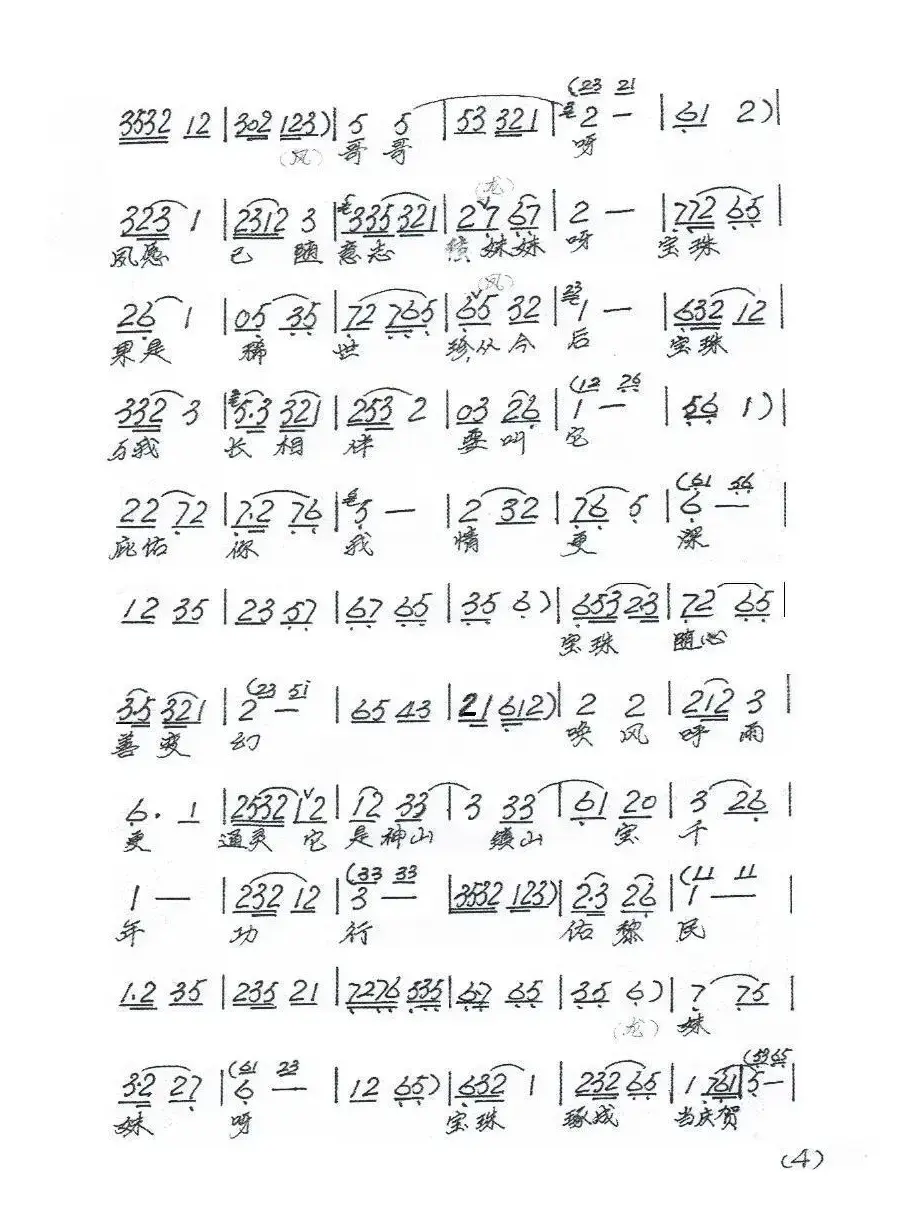 3532 12 | 302 123) | 5 5 | 53 321 | 2 — (23 21 | 61 2) |
(凤) 哥 哥 呀
323 1 | 2312 3 | 335 321 | 27 67 | 2 — | 772 65 |
夙愿 已 随 意志 (龙) 妹妹 呀 宝珠
26 1 | 05 35 | 72 765 | 65 32 | 1 — | 632 12 |
果是 稀 世 珍, (凤) 从今 后 宝珠
332 3 | 5·3 321 | 253 2 | 03 26 | 1 — (12 76 | 56 1) |
与我 长相 伴 要叫 它
22 72 | 7·2 76 | 5 — | 2 32 | 76 5 | 6 — (61 56 |
庇佑 你 我 情 更 深
12 35 | 23 57 | 67 65 | 35 6) | 653 2·3 | 72 65 |
宝珠 随心
3·5 321 | 2 — (23 51 | 65 43 | 21 612) | 2 2 | 212 3 |
善变 幻 唤 风 呼 雨
6· 1 | 2532 12 | 12 33 | 3 33 | 61 20 | 3 26 |
更 通灵 它 是神山 镇山 宝 千
1 — | 232 12 | 3 — (33 33 | 3532 123) | 2·3 26 | 1 — (11 11 |
年 功 行 佑黎 民
1·2 35 | 235 21 | 7276 535 | 67 65 | 35 6) | 7 75 |
(龙) 妹
3·2 27 | 6 — (61 23 | 12 65) | 632 1 | 232 65 | 1 761 | 5 — (53 65 |
妹 呀 宝珠 琢成 当庆贺
(4)